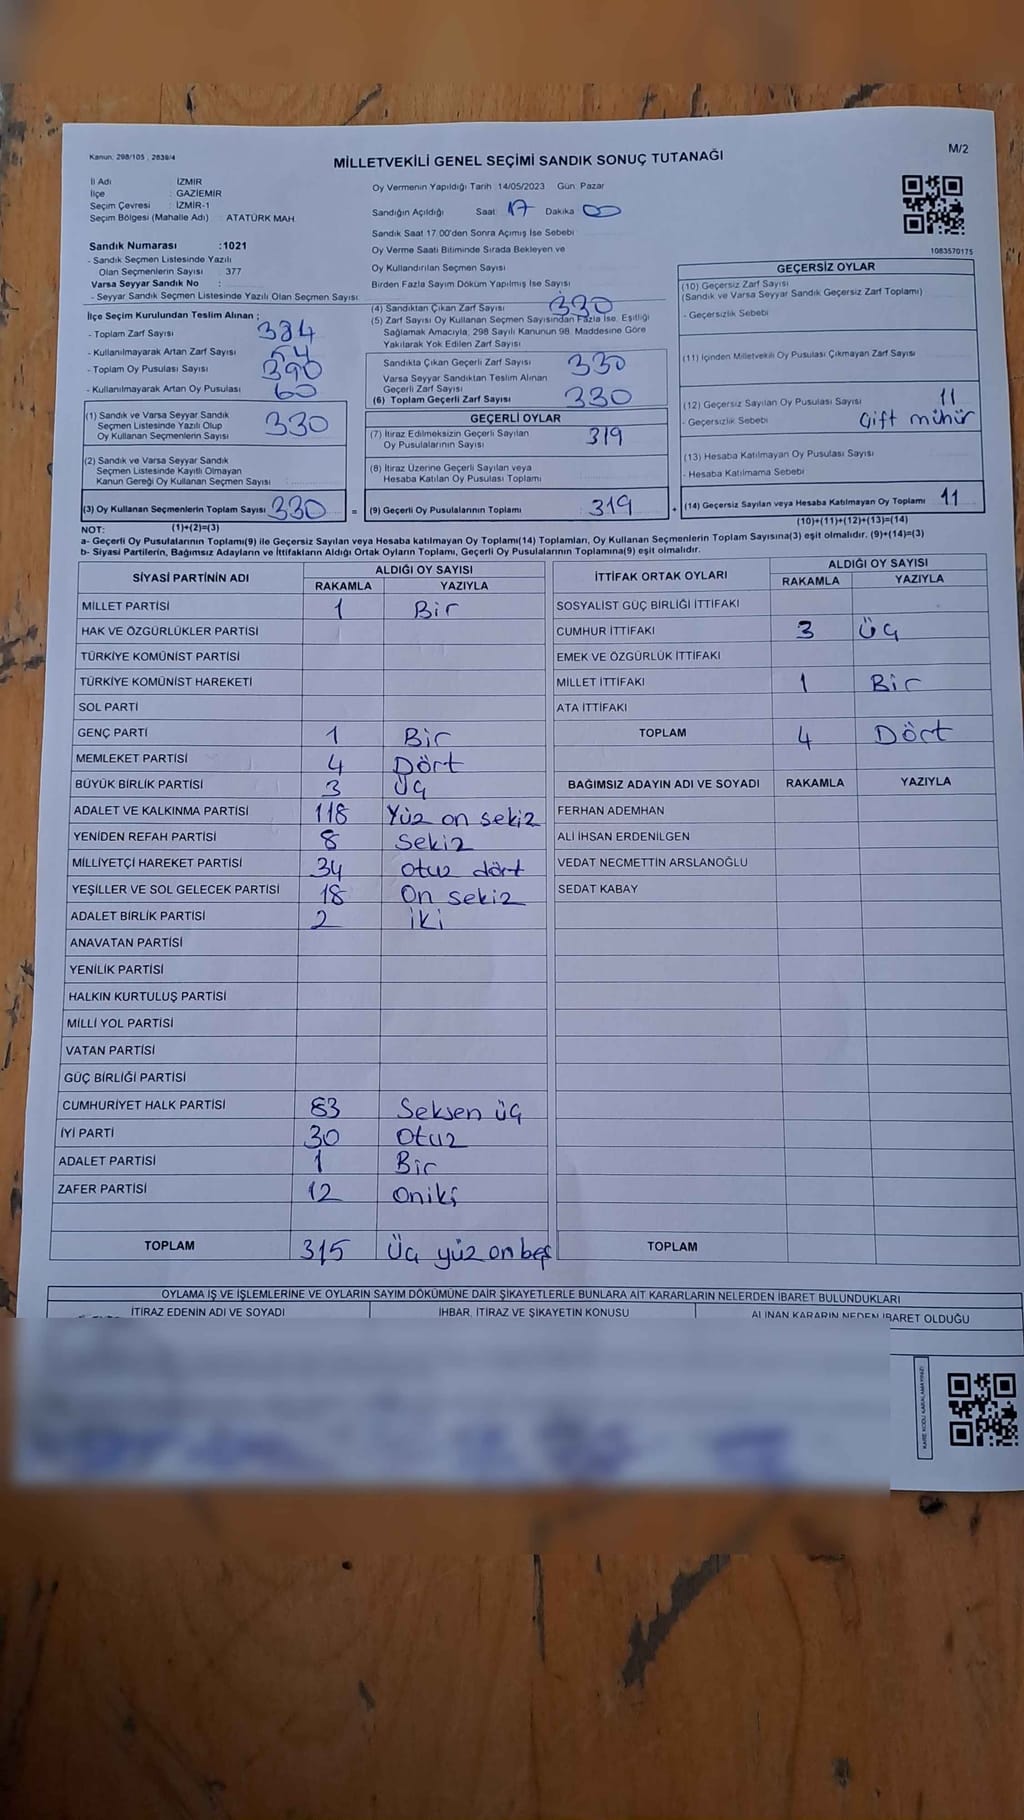 Kanun: 298/105 , 2839/4
MİLLETVEKİLİ GENEL SEÇİMİ SANDIK SONUÇ TUTANAĞI
M/2
İl Adı : İZMİR
İlçe : GAZİEMİR
Seçim Çevresi : İZMİR-1
Seçim Bölgesi (Mahalle Adı) : ATATÜRK MAH
Oy Vermenin Yapıldığı Tarih 14/05/2023 Gün: Pazar
Sandığın Açıldığı Saat: 17 Dakika 00
Sandık Saat 17.00'den Sonra Açımış İse Sebebi
Sandık Numarası :1021
- Sandık Seçmen Listesinde Yazılı
Olan Seçmenlerin Sayısı : 377
Varsa Seyyar Sandık No :
- Seyyar Sandık Seçmen Listesinde Yazılı Olan Seçmen Sayısı:
Oy Verme Saati Bitiminde Sırada Bekleyen ve
Oy Kullandırılan Seçmen Sayısı
Birden Fazla Sayım Döküm Yapılmış İse Sayısı
1083570175
İlçe Seçim Kurulundan Teslim Alınan ;
- Toplam Zarf Sayısı 384
- Kullanılmayarak Artan Zarf Sayısı 54
- Toplam Oy Pusulası Sayısı 390
- Kullanılmayarak Artan Oy Pusulası 60
(1) Sandık ve Varsa Seyyar Sandık
Seçmen Listesinde Yazılı Olup
Oy Kullanan Seçmenlerin Sayısı 330
(2) Sandık ve Varsa Seyyar Sandık
Seçmen Listesinde Kayıtlı Olmayan
Kanun Gereği Oy Kullanan Seçmen Sayısı
(3) Oy Kullanan Seçmenlerin Toplam Sayısı 330 =
(4) Sandıktan Çıkan Zarf Sayısı 330
(5) Zarf Sayısı Oy Kullanan Seçmen Sayısından Fazla İse, Eşitliği
Sağlamak Amacıyla, 298 Sayılı Kanunun 98. Maddesine Göre
Yakılarak Yok Edilen Zarf Sayısı
Sandıkta Çıkan Geçerli Zarf Sayısı 330
Varsa Seyyar Sandıktan Teslim Alınan
Geçerli Zarf Sayısı
(6) Toplam Geçerli Zarf Sayısı 330
GEÇERLİ OYLAR
(7) İtiraz Edilmeksizin Geçerli Sayılan
Oy Pusulalarının Sayısı 319
(8) İtiraz Üzerine Geçerli Sayılan veya
Hesaba Katılan Oy Pusulası Toplamı
(9) Geçerli Oy Pusulalarının Toplamı : 319 +
GEÇERSİZ OYLAR
(10) Geçersiz Zarf Sayısı
(Sandık ve Varsa Seyyar Sandık Geçersiz Zarf Toplamı)
- Geçersizlik Sebebi
(11) İçinden Milletvekili Oy Pusulası Çıkmayan Zarf Sayısı
(12) Geçersiz Sayılan Oy Pusulası Sayısı 11
- Geçersizlik Sebebi Çift mühür
(13) Hesaba Katılmayan Oy Pusulası Sayısı
- Hesaba Katılmama Sebebi
(14) Geçersiz Sayılan veya Hesaba Katılmayan Oy Toplamı 11
NOT: (1)+(2)=(3)
(10)+(11)+(12)+(13)=(14)
a- Geçerli Oy Pusulalarının Toplamı(9) ile Geçersiz Sayılan veya Hesaba katılmayan Oy Toplamı(14) Toplamları, Oy Kullanan Seçmenlerin Toplam Sayısına(3) eşit olmalıdır. (9)+(14)=(3)
b- Siyasi Partilerin, Bağımsız Adayların ve İttifakların Aldığı Ortak Oyların Toplamı, Geçerli Oy Pusulalarının Toplamına(9) eşit olmalıdır.
SİYASİ PARTİNİN ADI ALDIĞI OY SAYISI
RAKAMLA YAZIYLA
MİLLET PARTİSİ 1 Bir
HAK VE ÖZGÜRLÜKLER PARTİSİ
TÜRKİYE KOMÜNİST PARTİSİ
TÜRKİYE KOMÜNİST HAREKETİ
SOL PARTİ
GENÇ PARTİ 1 Bir
MEMLEKET PARTİSİ 4 Dört
BÜYÜK BİRLİK PARTİSİ 3 Üç
ADALET VE KALKINMA PARTİSİ 118 Yüz on sekiz
YENİDEN REFAH PARTİSİ 8 Sekiz
MİLLİYETÇİ HAREKET PARTİSİ 34 otuz dört
YEŞİLLER VE SOL GELECEK PARTİSİ 18 On sekiz
ADALET BİRLİK PARTİSİ 2 iki
ANAVATAN PARTİSİ
YENİLİK PARTİSİ
HALKIN KURTULUŞ PARTİSİ
MİLLİ YOL PARTİSİ
VATAN PARTİSİ
GÜÇ BİRLİĞİ PARTİSİ
CUMHURİYET HALK PARTİSİ 83 Seksen üç
İYİ PARTİ 30 Otuz
ADALET PARTİSİ 1 Bir
ZAFER PARTİSİ 12 Oniki
TOPLAM 315 Üç yüz on beş
İTTİFAK ORTAK OYLARI ALDIĞI OY SAYISI
RAKAMLA YAZIYLA
SOSYALİST GÜÇ BİRLİĞİ İTTİFAKI
CUMHUR İTTİFAKI 3 Üç
EMEK VE ÖZGÜRLÜK İTTİFAKI
MİLLET İTTİFAKI 1 Bir
ATA İTTİFAKI
TOPLAM 4 Dört
BAĞIMSIZ ADAYIN ADI VE SOYADI RAKAMLA YAZIYLA
FERHAN ADEMHAN
ALİ İHSAN ERDENİLGEN
VEDAT NECMETTİN ARSLANOĞLU
SEDAT KABAY
TOPLAM
OYLAMA İŞ VE İŞLEMLERİNE VE OYLARIN SAYIM DÖKÜMÜNE DAİR ŞİKAYETLERLE BUNLARA AİT KARARLARIN NELERDEN İBARET BULUNDUKLARI
İTİRAZ EDENİN ADI VE SOYADI İHBAR, İTİRAZ VE ŞİKAYETİN KONUSU ALINAN KARARIN NEDEN İBARET OLDUĞU
KARE KODU KARALAMAYINIZ!